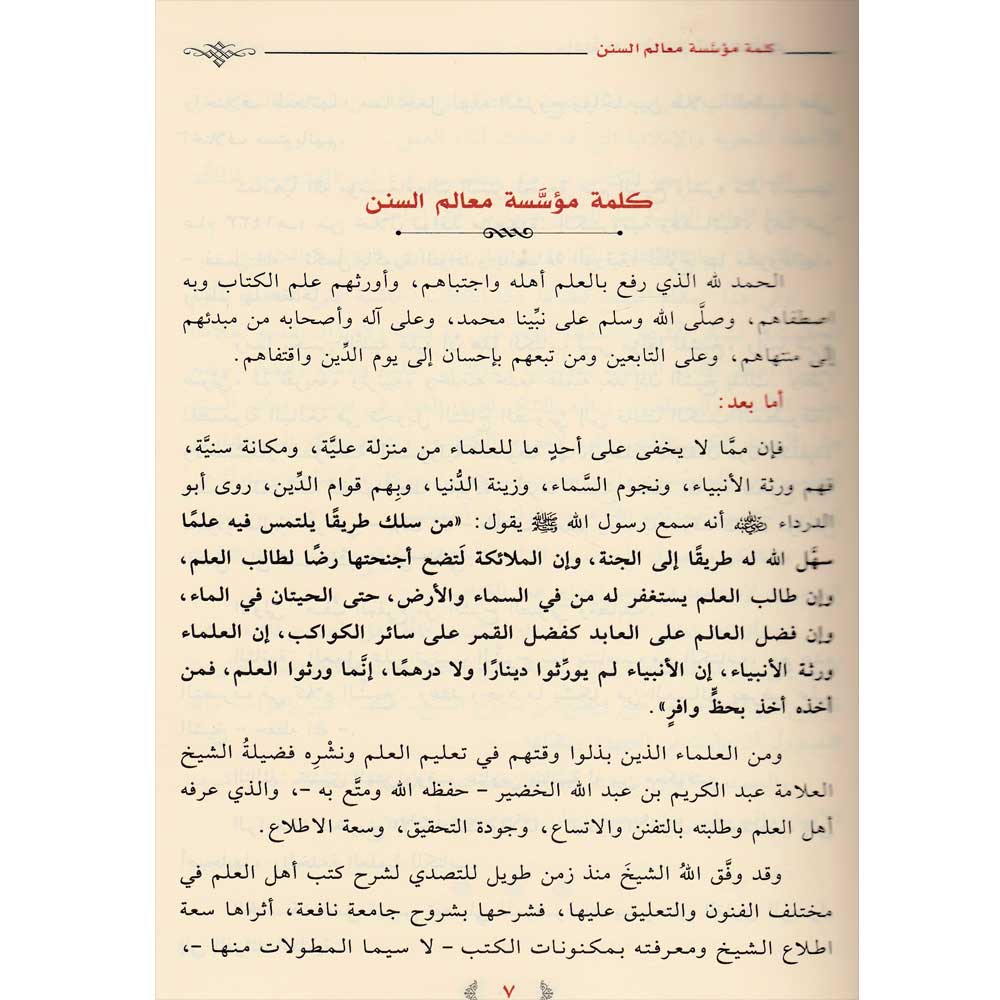 كلمة مؤسَّسة معالم السنن
كلمة مؤسَّسة معالم السنن
الحمد لله الذي رفع بالعلم أهله واجتباهم، وأورثهم علم الكتاب وبه
اصطفاهم، وصلَّى الله وسلم على نبِّينا محمد، وعلى آله وأصحابه من مبدئهم
إلى منتهاهم، وعلى التابعين ومن تبعهم بإحسان إلى يوم الدِّين واقتفاهم.
أما بعد:
فإن ممَّا لا يخفى على أحدٍ ما للعلماء من منزلة عليَّة، ومكانة سنيَّة،
فهم ورثة الأنبياء، ونجوم السَّماء، وزينة الدُّنيا، وبِهم قوام الدِّين، روى أبو
الدرداء رضي الله عنه أنه سمع رسول الله ﷺ يقول: «من سلك طريقًا يلتمس فيه علمًا
سهَّل الله له طريقًا إلى الجنة، وإن الملائكة لَتضع أجنحتها رضًا لطالب العلم،
وإن طالب العلم يستغفر له من في السماء والأرض، حتى الحيتان في الماء،
وإن فضل العالم على العابد كفضل القمر على سائر الكواكب، إن العلماء
ورثة الأنبياء، إن الأنبياء لم يورِّثوا دينارًا ولا درهمًا، إنَّما ورثوا العلم، فمن
أخذه أخذ بحظٍّ وافرٍ».
ومن العلماء الذين بذلوا وقتهم في تعليم العلم ونشْرِه فضيلةُ الشيخ
العلامة عبد الكريم بن عبد الله الخضير – حفظه الله ومتَّع به –، والذي عرفه
أهل العلم وطلبته بالتفنن والاتساع، وجودة التحقيق، وسعة الاطلاع.
وقد وفَّق اللهُ الشيخَ منذ زمن طويل للتصدي لشرح كتب أهل العلم في
مختلف الفنون والتعليق عليها، فشرحها بشروح جامعة نافعة، أثراها سعة
اطلاع الشيخ ومعرفته بمكنونات الكتب – لا سيما المطولات منها –،
٧